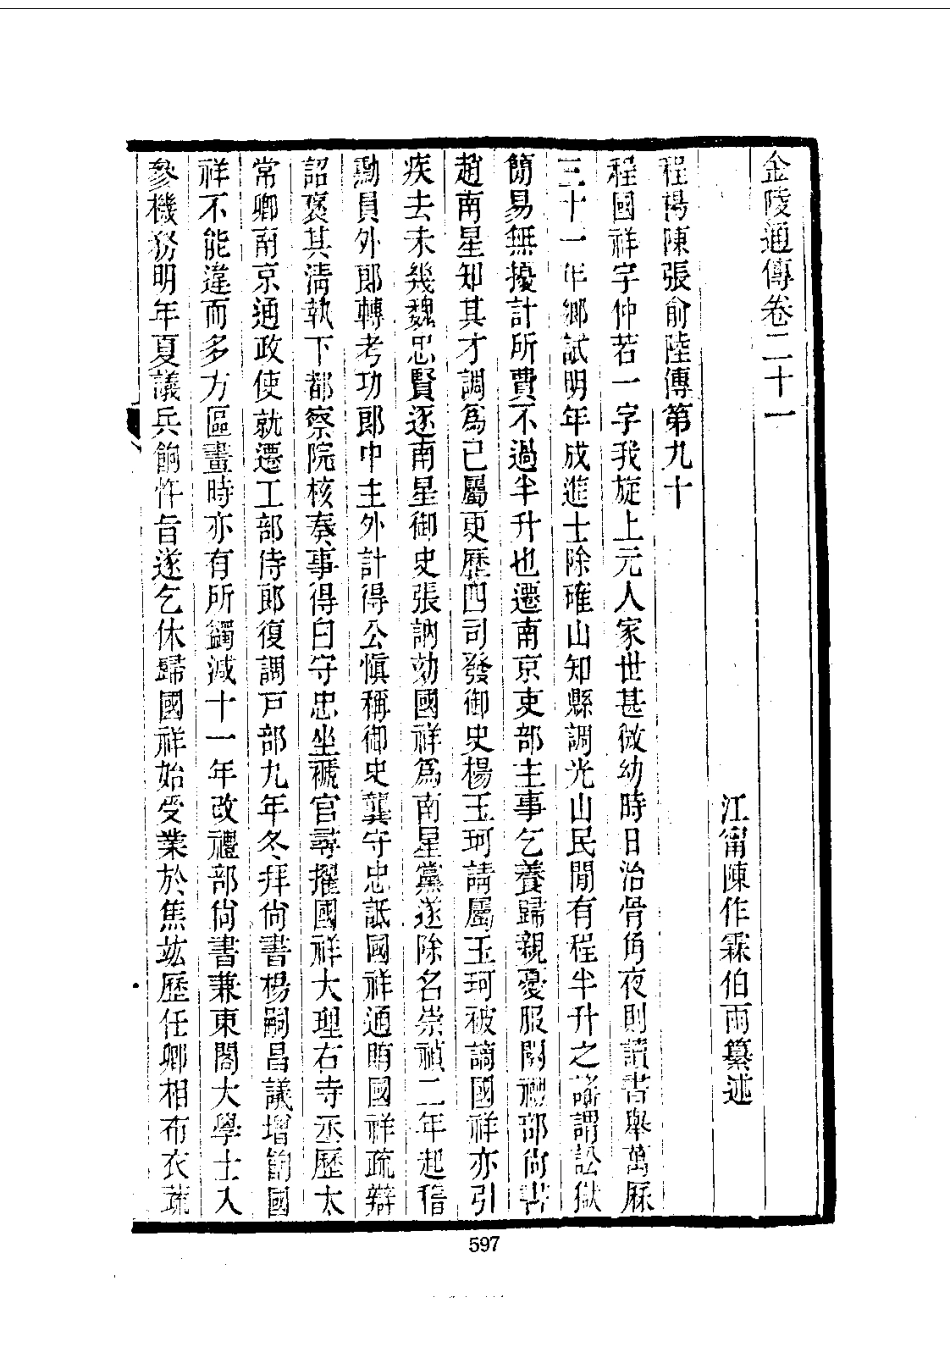 金陵通傳卷二十一
江甯陳作霖伯雨纂述
程楊陳張俞陸傳第九十
程國祥字仲若一字我旋上元人家世甚微幼時日治骨角夜則讀書舉萬厤
三十一年鄉試明年成進士除確山知縣調光山民間有程半升之謠謂訟獄
簡易無擾計所費不過半升也遷南京吏部主事乞養歸親憂服闋禮部尚書
趙南星知其才調爲己屬更歷四司發御史楊玉珂請屬玉珂被謫國祥亦引
疾去未幾魏忠賢逐南星御史張訥劾國祥爲南星黨遂除名崇禎二年起稽
勳員外郎轉考功郎中主外計得公愼稱御史龔守忠詆國祥通賄國祥疏辯
詔褒其清執下都察院核奏事得白守忠坐褫官尋擢國祥大理右寺丞歷太
常卿南京通政使就遷工部侍郎復調戸部九年冬拜尚書楊嗣昌議增餉國
祥不能違而多方區畫時亦有所蠲減十一年改禮部尚書兼東閣大學士入
參機務明年夏議兵餉忤旨遂乞休歸國祥始受業於焦竑歷任卿相布衣蔬
597